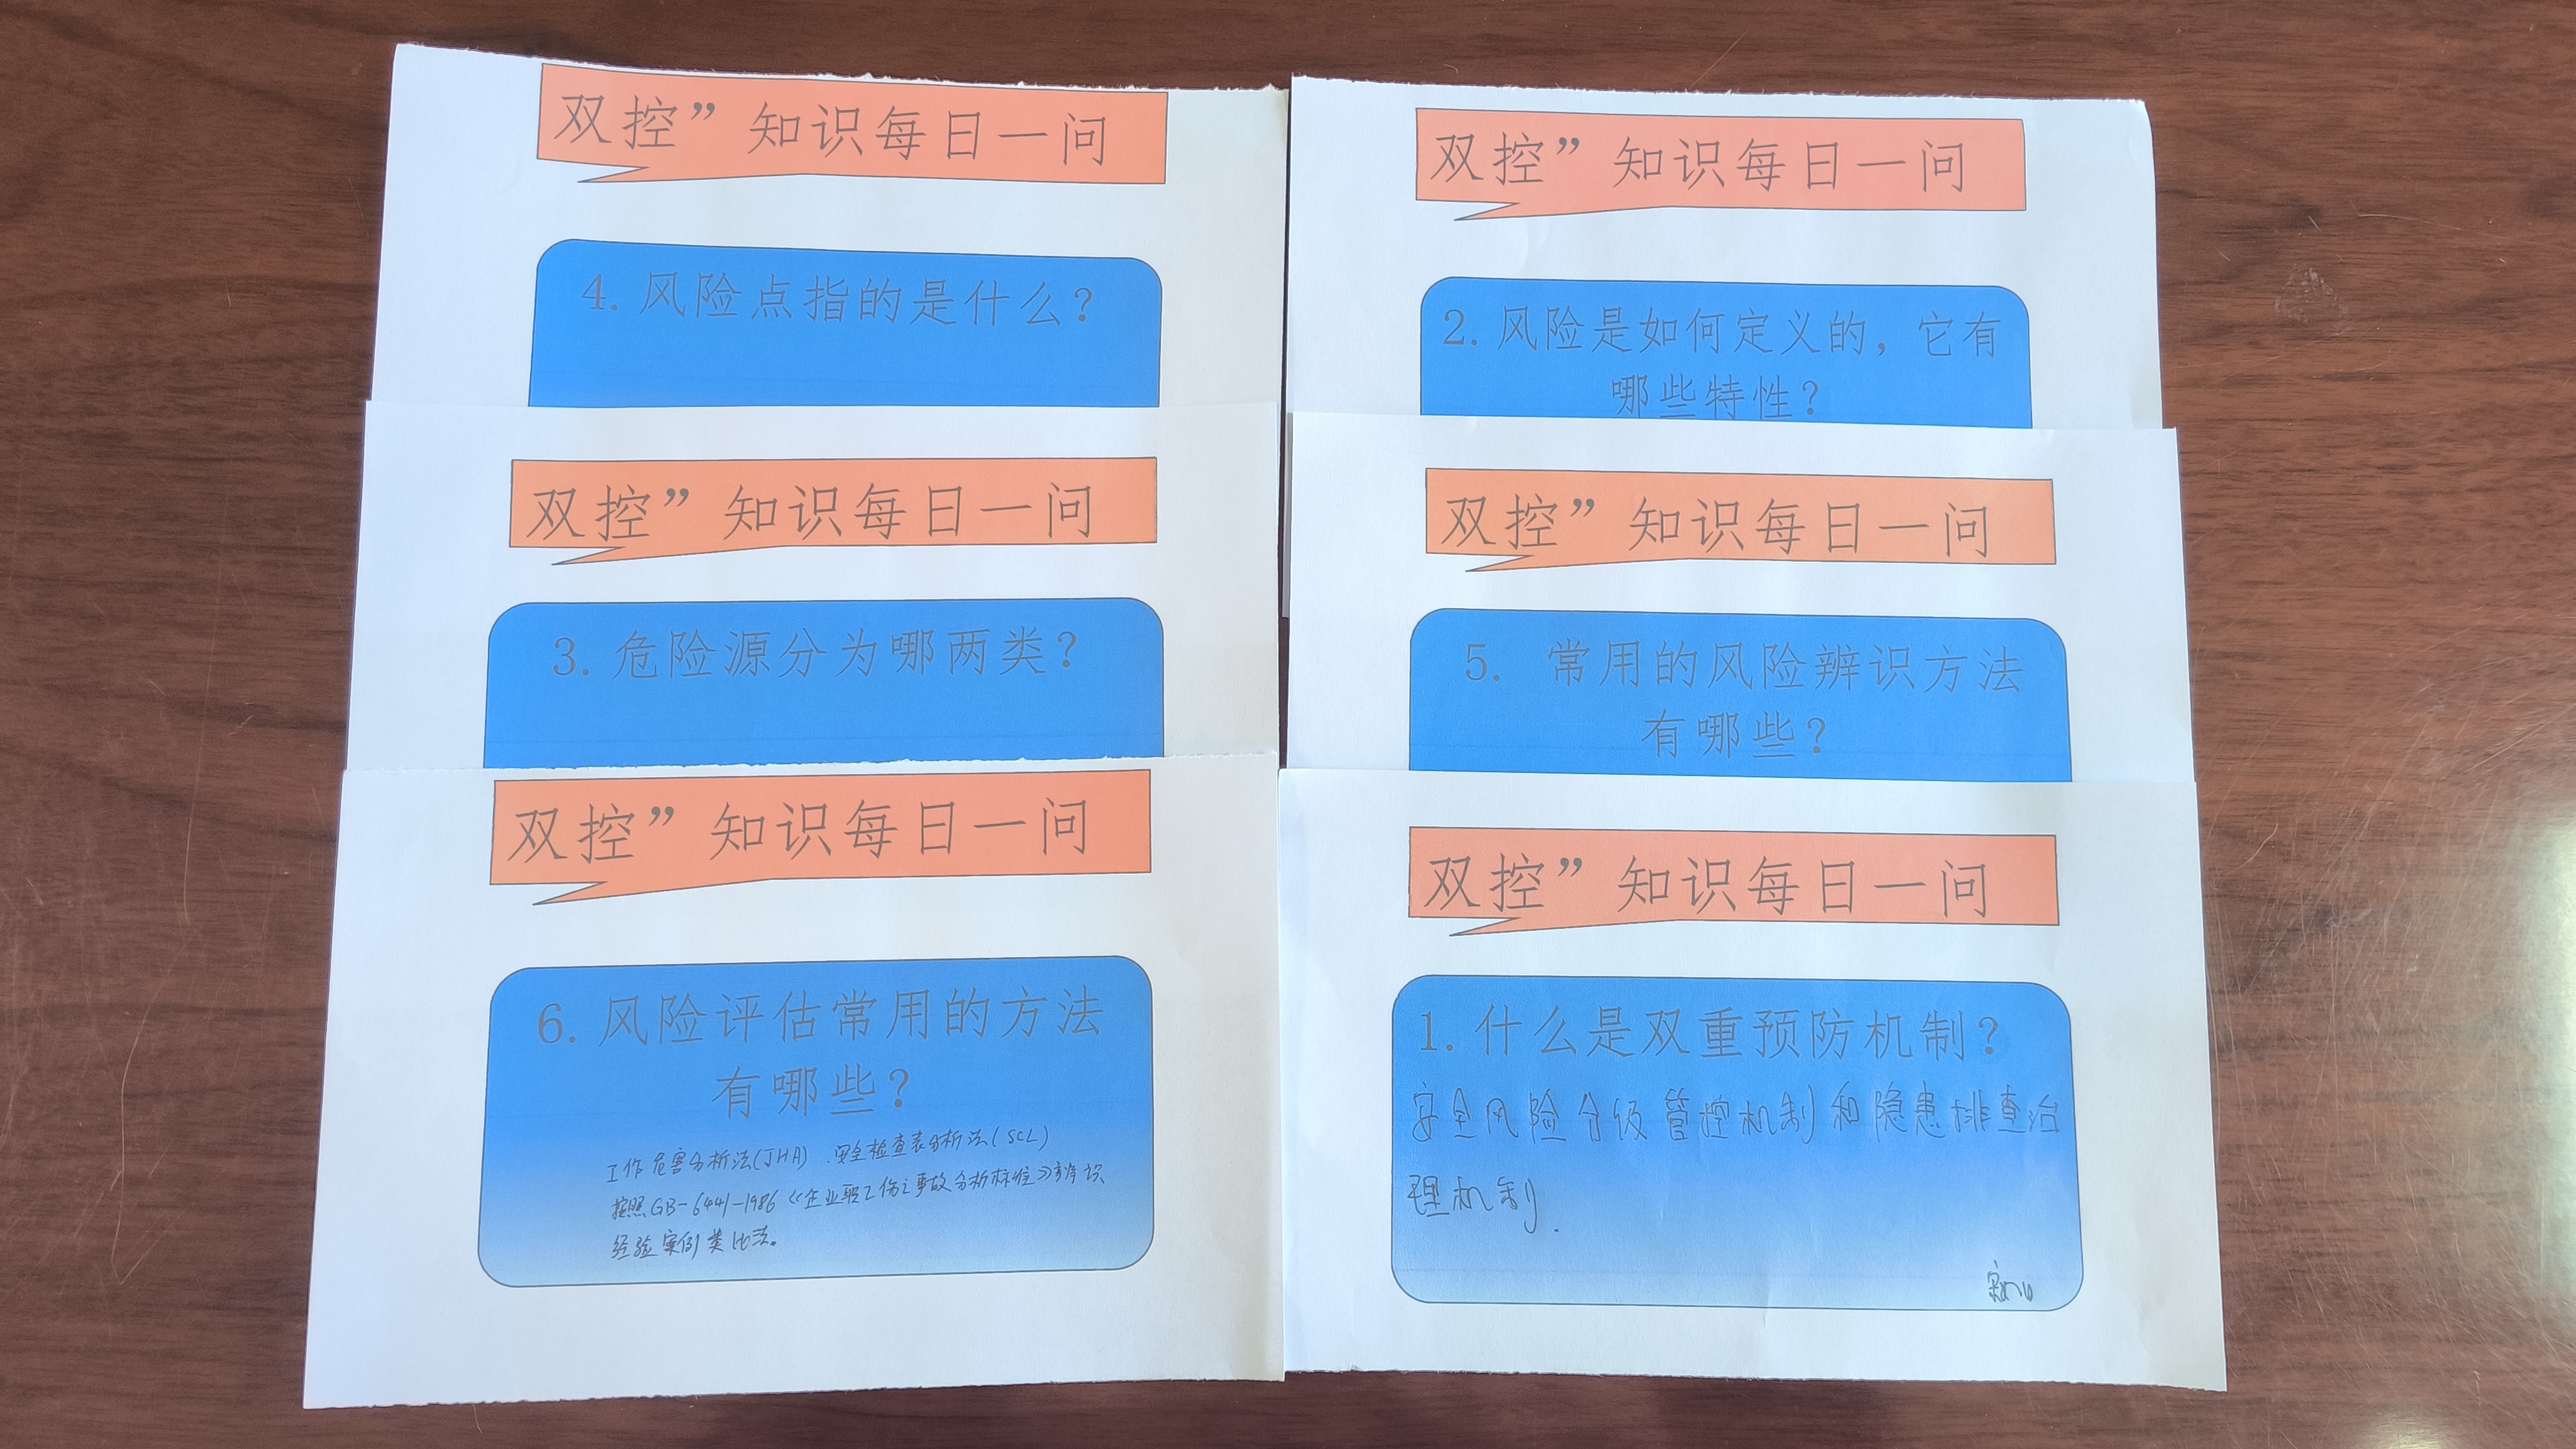 双控”知识每日一问
4. 风险点指的是什么？
双控”知识每日一问
3. 危险源分为哪两类？
双控”知识每日一问
6. 风险评估常用的方法
有哪些？
工作危害分析法(JHA)、安全检查表分析法(SCL)
按照GB-6441-1986《企业职工伤亡事故分析标准》辨识
经验案例类比法。
双控”知识每日一问
2. 风险是如何定义的，它有
哪些特性？
双控”知识每日一问
5. 常用的风险辨识方法
有哪些？
双控”知识每日一问
1. 什么是双重预防机制？
安全风险分级管控机制和隐患排查治
理机制.